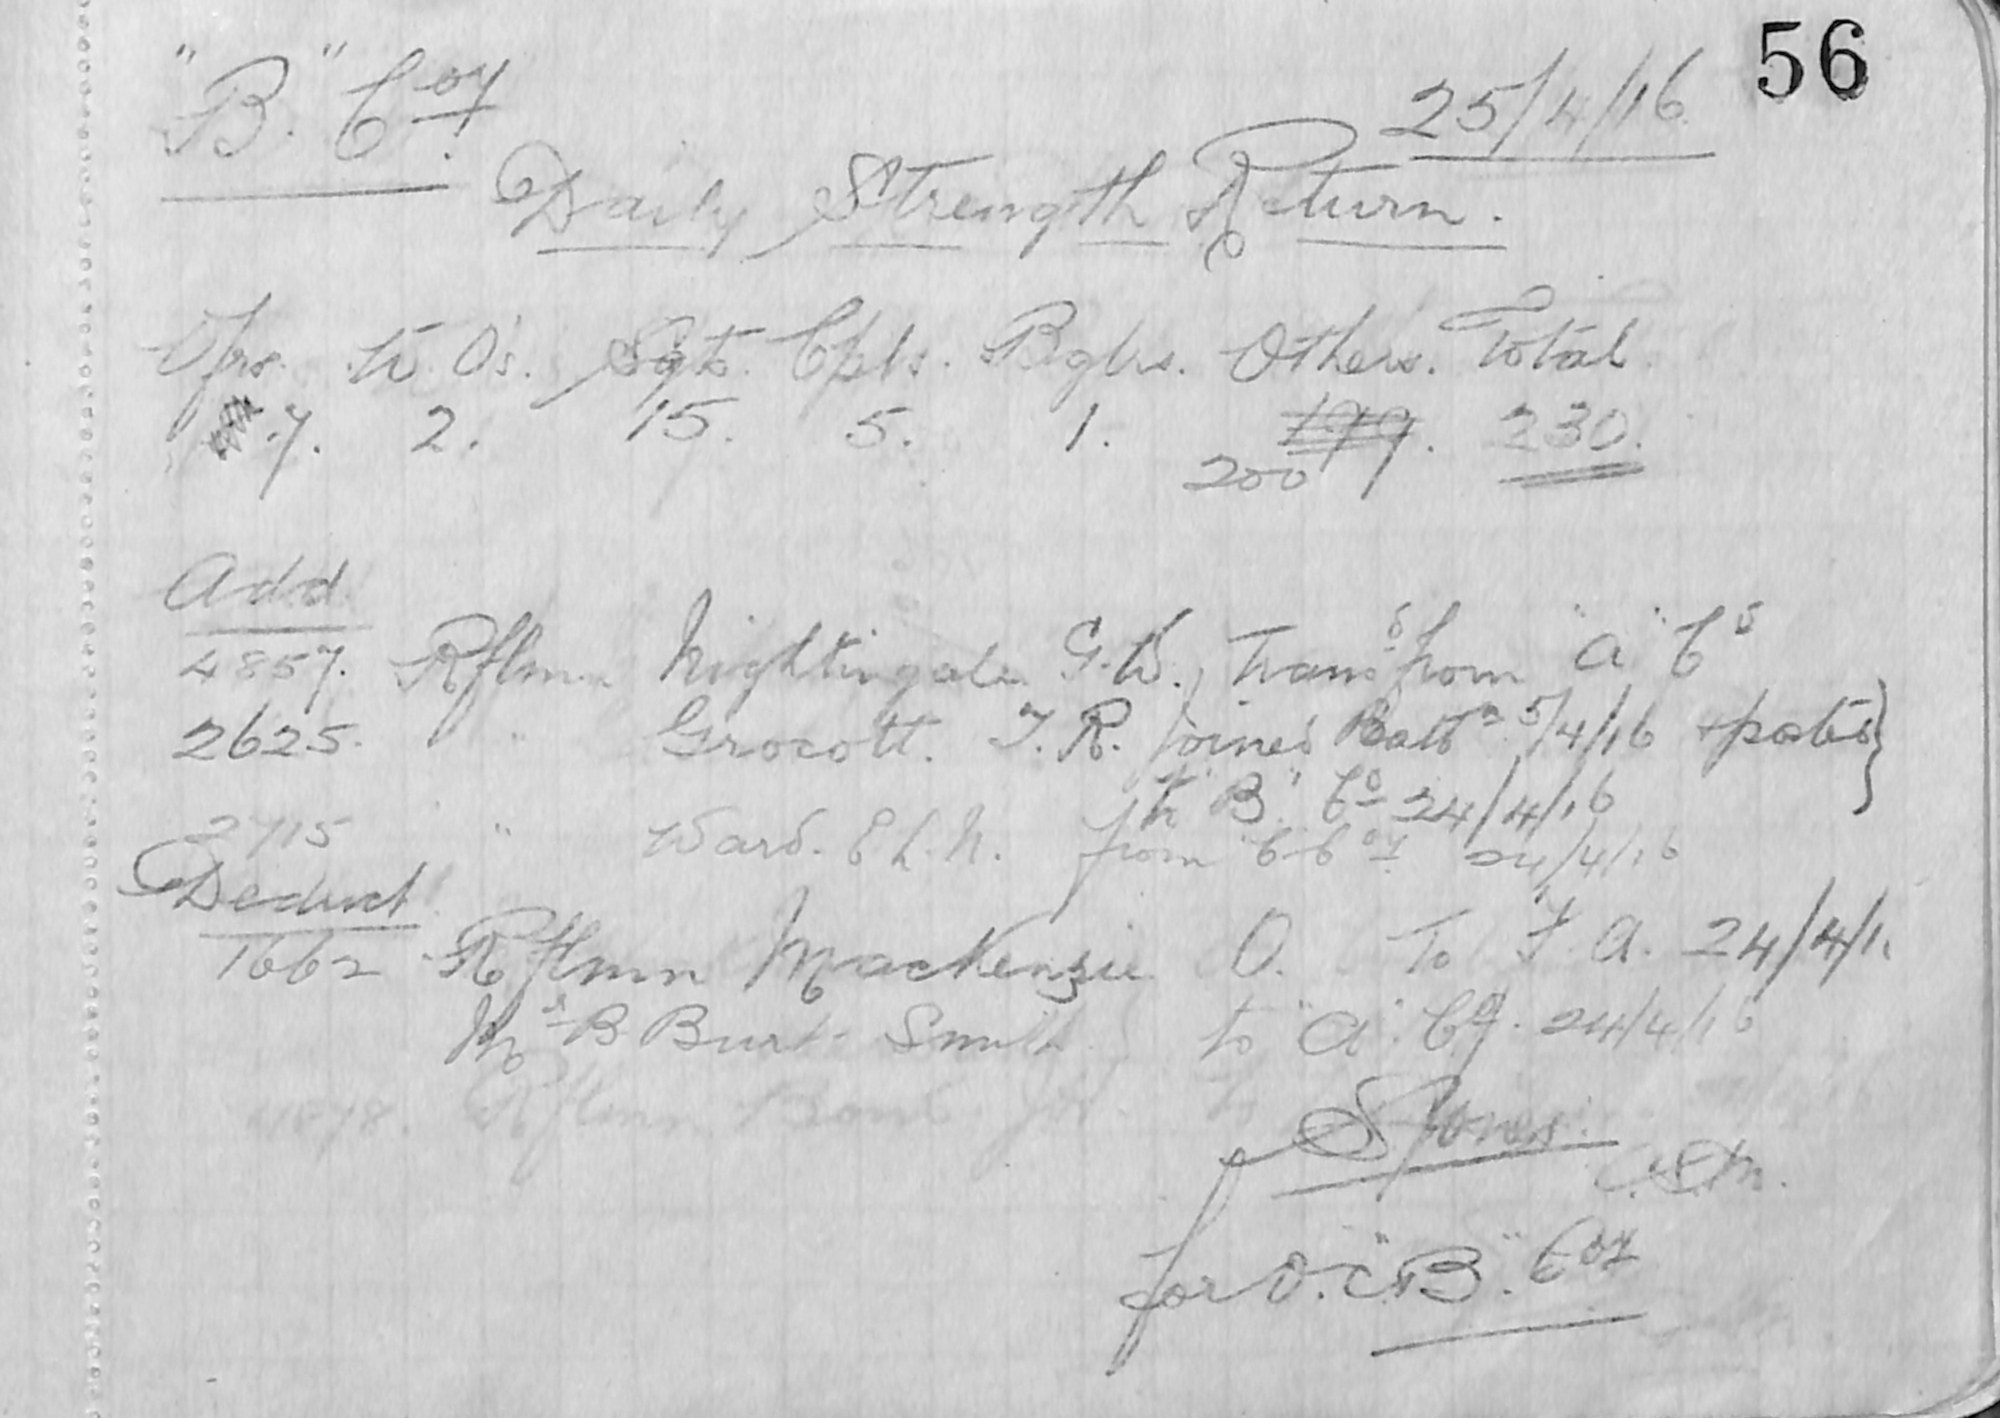 56
"B" Coy. 25/4/16
Daily Strength Return.
Ofrs. W.O's. Sgts. Cpls. Bglrs. Others. Total
7. 2. 15. 5. 1. 199. 230.
200
Add
4857. Rflmn Nightingale G.W. Trans from "A" Co
2625. " Grocott. T.R. Joined Battn 5/4/16 & posted
to "B" Co 24/4/16
2715 " Ward. E L.N. from C Coy 24/4/16
Deduct
1662 Rflmn MacKenzie O. To F.A. 24/4/1
Mr B Burt-Smith to "A" Coy. 24/4/16
Rflmn
S Jones
C.S.M.
for O.C. "B". Coy